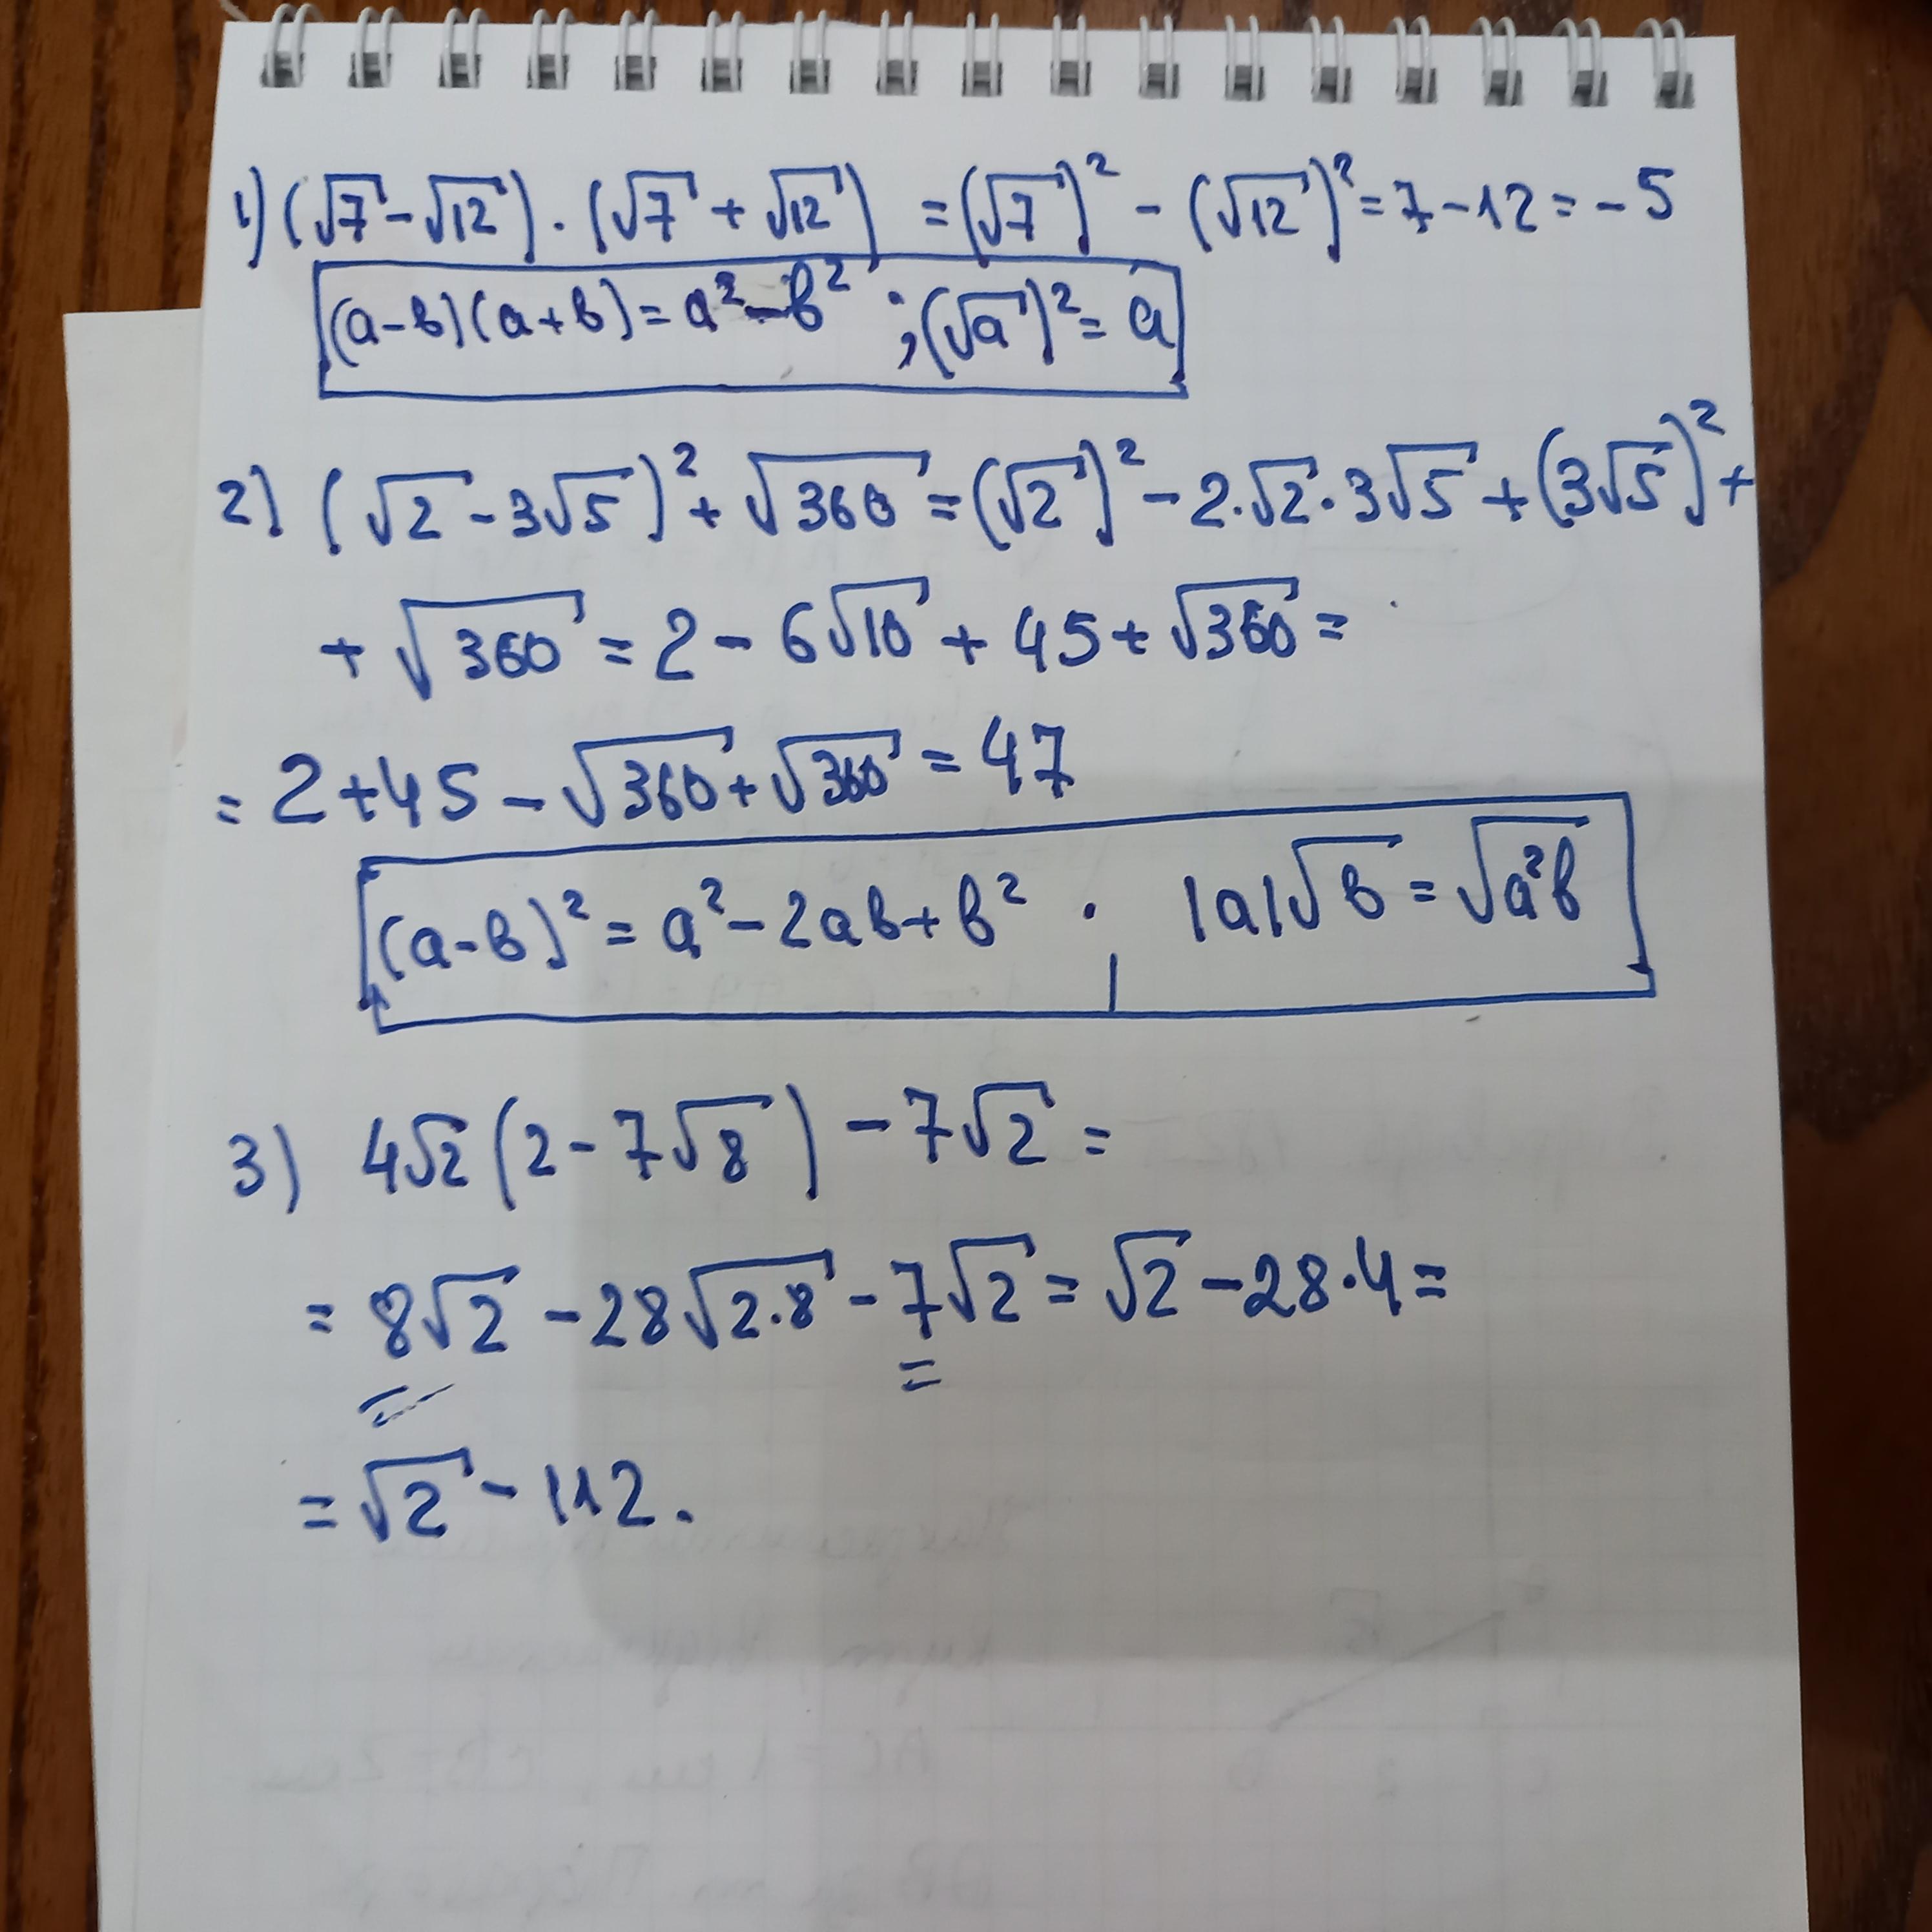 1) (√7 - √12) · (√7 + √12) = (√7)² - (√12)² = 7 - 12 = - 5
(a-b)(a+b) = a² - b² ; (√a)² = a
2) (√2 - 3√5)² + √360 = (√2)² - 2·√2·3√5 + (3√5)² +
+ √360 = 2 - 6√10 + 45 + √360 =
= 2 + 45 - √360 + √360 = 47
(a-b)² = a² - 2ab + b² ; |a|√b = √a²b
3) 4√2 (2 - 7√8) - 7√2 =
= 8√2 - 28√2·8 - 7√2 = √2 - 28·4 =
= √2 - 112.